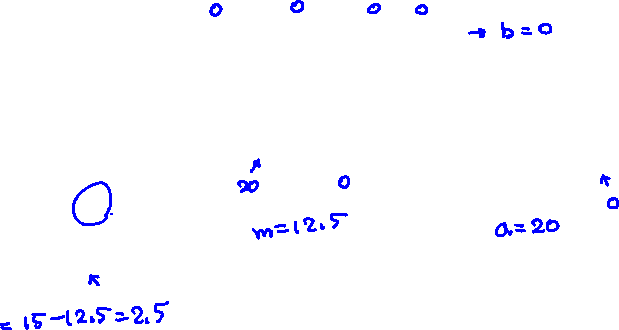 0 0 0 0
→ b=0
20 0
0
m=12.5
a=20
= 15-12.5=2.5